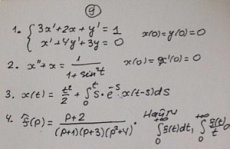 9
1. { 3x'+2x+y' = 1
x'+4y'+3y = 0
x(0)=y(0)=0
2. x''+x = 1/(1+sin²t)
x(0)=x'(0)=0
3. x(t) = t²/2 + ∫₀ᵗ s·e⁻ˢ x(t-s)ds
4. (p) = (p+2)/((p+1)(p+3)(p²+4)) . Найти ∫₀^{+∞} (t)dt, ∫₀^{+∞} (t)/t